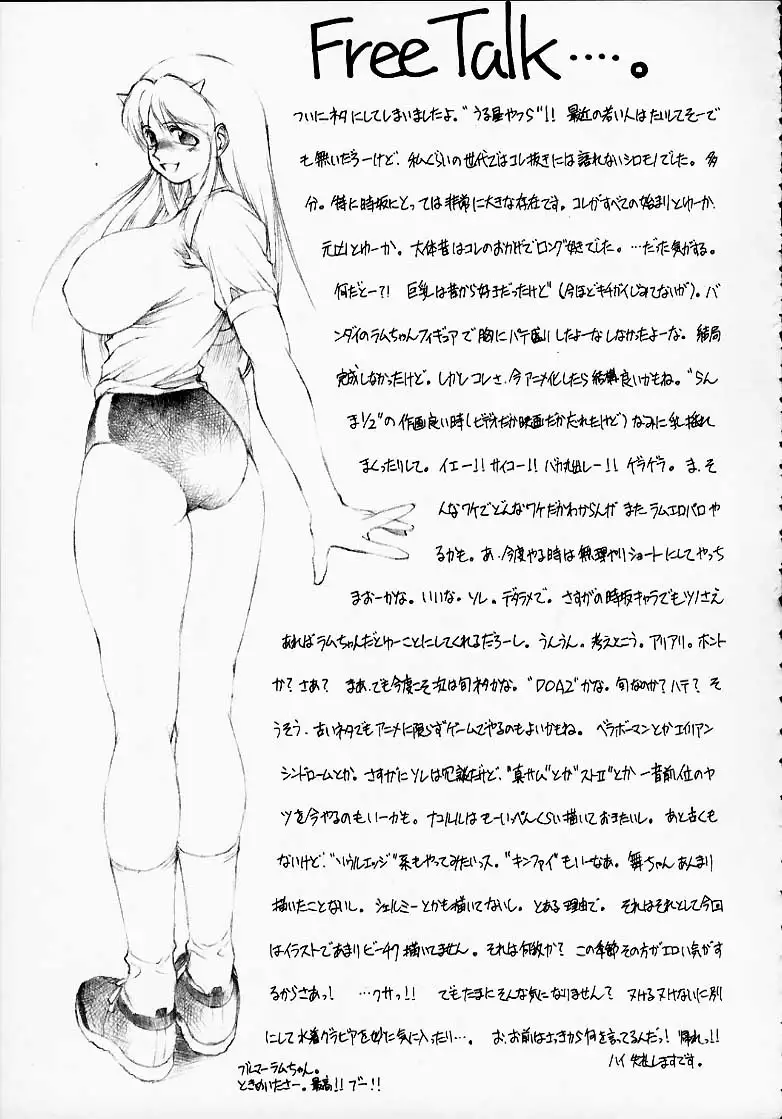 Free Talk‥‥。
ついにネタにしてしまいましたよ。"うる星やつら"!! 最近の若い人はたいしてそーで
も無いだろーけど、私ぐらいの世代ではコレ抜きには語れないシロモノでした。多
分。特に時坂にとっては非常に大きな存在です。コレがすべての始まりとゆーか、
元凶とゆーか。大体昔はコレのおかげでロング好きでした。…だった気がする。
何だとー?! 巨乳は昔から好きだったけど(今ほどキチガイじみてないが)。バ
ンダイのラムちゃんフィギュアで胸にパテ盛りしたよーなしなかったよーな。結局
完成しなかったけど。しかしコレさ、今アニメ化したら結構良いかもね。"らん
ま1/2"の作画良い時(ビデオだか映画だか忘れたけど)なみに乳揺れ
まくったりして。イエー!! サイコー!! バカ丸出しー!! ゲラゲラ。ま、そ
んなワケでどんなワケだかわからんが またラムエロパロや
るかも。あ、今度やる時は無理やりショートにしてやっち
まおーかな。いいな。ソレ。デタラメで。さすがの時坂キャラでもツノさえ
あればラムちゃんだとゆーことにしてくれるだろーし。うんうん。考えとこう。アリアリ。ホント
か?さあ? まあ、でも今度こそ次は旬ネタかな。"DOA2"かな。旬なのか?ハテ? そ
うそう、古いネタでもアニメに限らずゲームでやるのもよいかもね。ベラボーマンとかエイリアン
シンドロームとか。さすがにソレは冗談だけど、"真サム"とか"ストⅡ"とか 一昔前位のヤ
ツを今やるのもいーかも。ナコルルはもーいっぺんくらい描いておきたいし。あと古くも
ないけど、"ソウルエッジ"系もやってみたいっス。"キンファイ"もいーなあ。舞ちゃんあんまり
描いたことないし。シェルミーとかも描いてないし。とある理由で。 それはそれとして今回
はイラストであまりビーチク描いてません。それは何故か? この季節その方がエロい気がす
るからさあっ! …クサっ!! でもたまにそんな気になりません? ヌけるヌけないに別
にして水着グラビアを妙に気に入ったり…。 お、お前はさっきから何を言ってるんだっ! 帰れっ!!
ハイ 失礼しますです。
ブルマーラムちゃん。
ときめいたさー。最高!! ブー!!